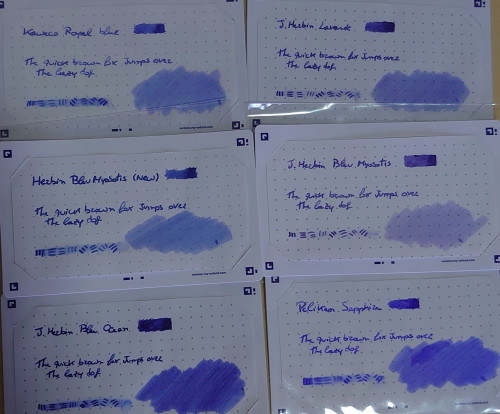 Kaweco Royal blue
The quick brown fox Jumps over
The lazy dof.
J. Herbin Lavande
The quick brown fox Jumps over
The lazy dof.
Herbin Bleu Myosotis (New)
The quick brown fox Jumps over
The lazy dof
J. Herbin Bleu Myosotis
The quick brown fox Jumps over
The lazy dof.
J. Herbin Bleu Ocean
The quick brown fox Jumps over
The lazy dof.
Pelikan Sapphire
The quick brown fox Jumps over
The lazy dof.